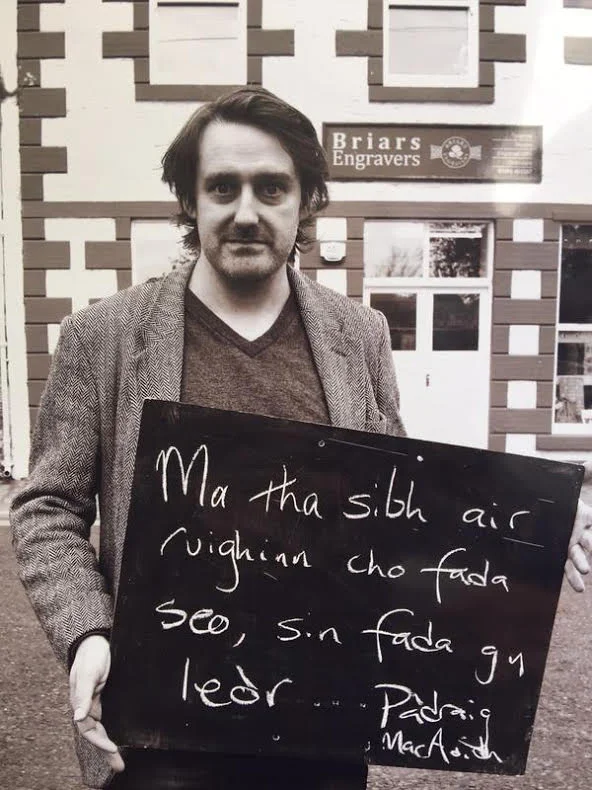 Briars
Engravers
Ma tha sibh air
ruighinn cho fada
seo, sin fada gu
leòr .... Pàdraig
MacAoidh